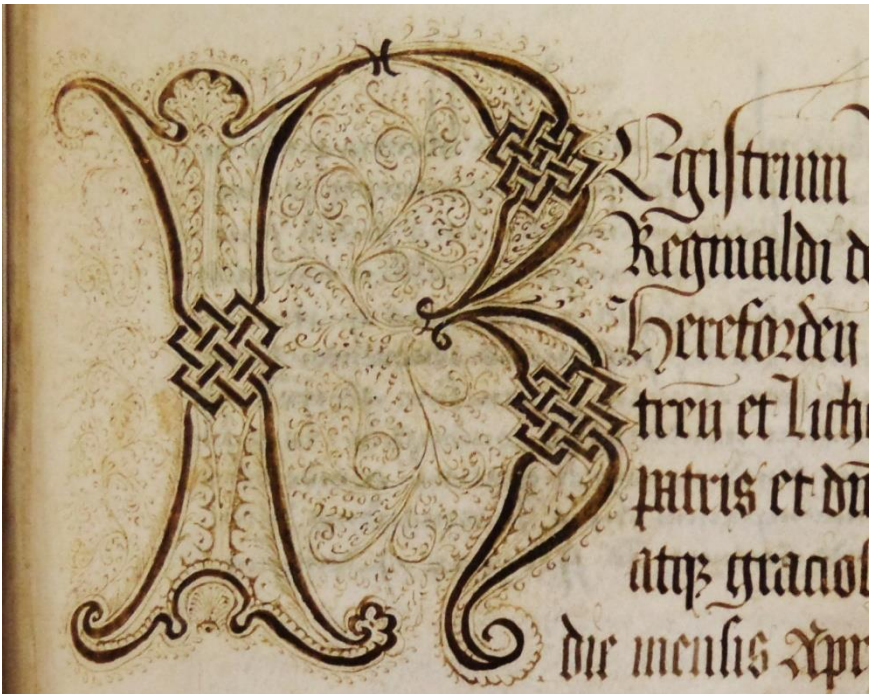 REgistrum
Reginaldi d
Hereforden
tren et Lich
patris et dn
atq3 gracios
die mensis Apr